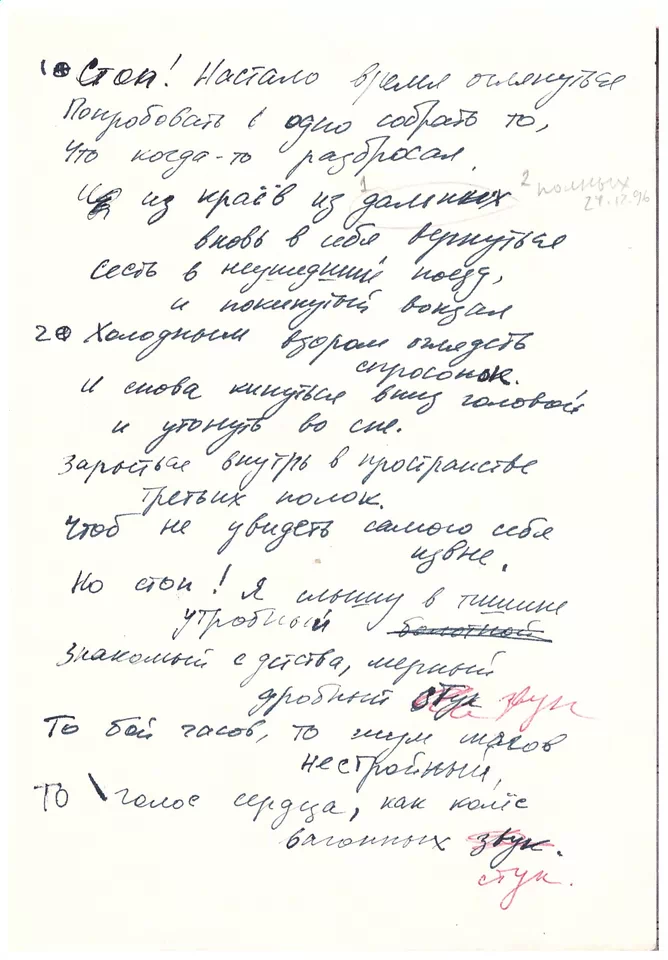 1 Стоп! Настало время оглянуться
Попробовать в одно собрать то,
Что когда-то разбросал
из краёв из дальних
1
2 полных
24.12.96
вновь в себя вернуться
Сесть в неушедший поезд,
и покинутый вокзал
2 Холодным взором оглядеть
спросонок.
И снова кинуться вниз головой
и утонуть во сне.
Зарыться внутрь в пространстве
третьих полок.
Чтоб не увидеть самого себя
извне.
Но стоп! Я слышу в тишине
утробный болотной
Знакомый с детства, мерный
дробный стук звук
То бой часов, то шум шагов
нестройный,
То голос сердца, как колёс
вагонных звук.
стук.